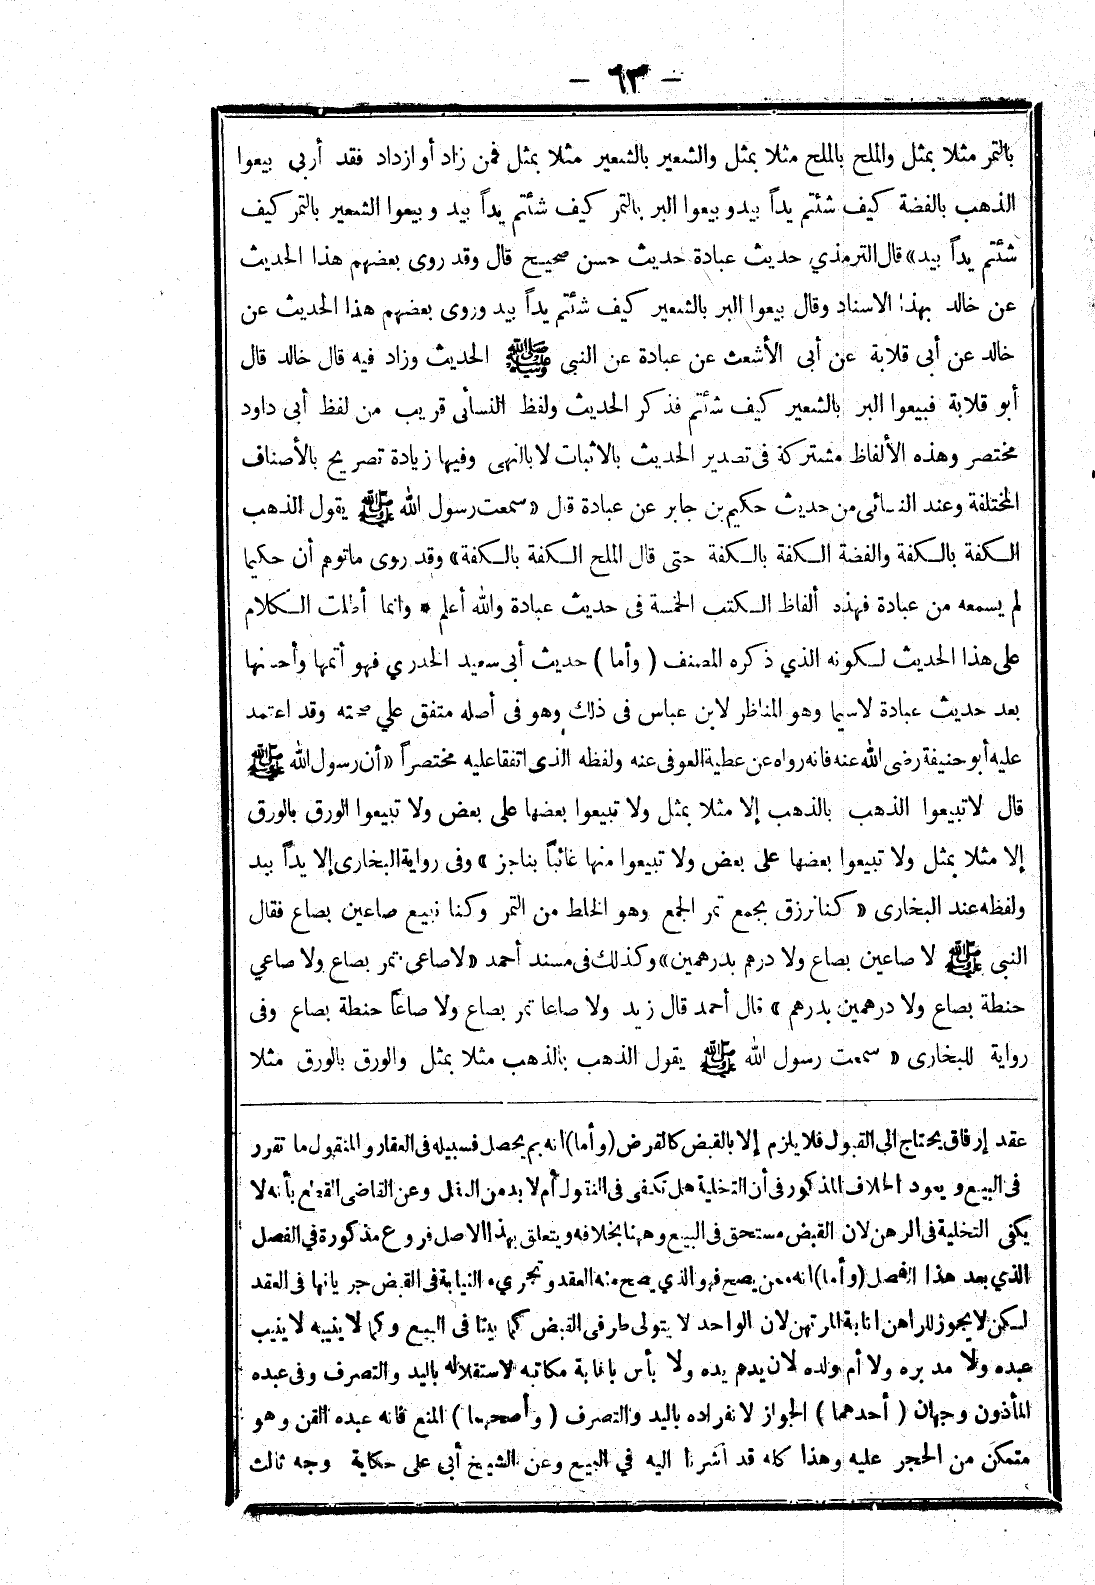 - ٦٣ -
بالتمر مثلا بمثل والملح بالملح مثلا بمثل والشعير بالشعير مثلا بمثل فمن زاد أو ازداد فقد أربى بيعوا
الذهب بالفضة كيف شئتم يداً بيد وبيعوا البر بالتمر كيف شئتم يداً بيد وبيعوا الشعير بالتمر كيف
شئتم يداً بيد» قال الترمذي حديث عبادة حديث حسن صحيح قال وقد روى بعضهم هذا الحديث
عن خالد بهذا الاسناد وقال بيعوا البر بالشعير كيف شئتم يداً بيد وروى بعضهم هذا الحديث عن
خالد عن أبى قلابة عن أبى الأشعث عن عبادة عن النبى ﷺ الحديث وزاد فيه قال خالد قال
أبو قلابة فبيعوا البر بالشعير كيف شئتم فذكر الحديث ولفظ النسائى قريب من لفظ أبى داود
مختصر وهذه الألفاظ مشتركة فى تصدير الحديث بالاثبات لا بالنهى وفيها زيادة تصريح بالأصناف
المختلفة وعند النسائى من حديث حكيم بن جابر عن عبادة قال «سمعت رسول الله ﷺ يقول الذهب
الكفة بالكفة والفضة الكفة بالكفة حتى قال الملح الكفة بالكفة» وقد روى ماتوهم أن حكيما
لم يسمعه من عبادة فهذه ألفاظ الكتب الخمسة فى حديث عبادة والله أعلم * وانما أطلت الكلام
على هذا الحديث لكونه الذي ذكره المصنف (وأما) حديث أبى سعيد الخدري فهو أتمها وأحسنها
بعد حديث عبادة لاسيما وهو المناظر لابن عباس فى ذلك وهو فى أصله متفق علي صحته وقد اعتمد
عليه أبو حنيفة رضى الله عنه فانه رواه عن عطية العوفى عنه ولفظه الذى اتفقا عليه مختصراً «أن رسول الله ﷺ
قال لا تبيعوا الذهب بالذهب إلا مثلا بمثل ولا تبيعوا بعضها على بعض ولا تبيعوا الورق بالورق
إلا مثلا بمثل ولا تبيعوا بعضها على بعض ولا تبيعوا منها غائباً بناجز» وفى رواية البخارى إلا يداً بيد
ولفظه عند البخارى «كنا نرزق بجمع تمر الجمع وهو الخلط من التمر وكنا نبيع صاعين بصاع فقال
النبى ﷺ لا صاعين بصاع ولا درهم بدرهمين» وكذلك فى مسند أحمد «لا صاعى تمر بصاع ولا صاعي
حنطة بصاع ولا درهمين بدرهم» قال أحمد قال زيد ولا صاعا تمر بصاع ولا صاعاً حنطة بصاع وفى
رواية للبخارى «سمعت رسول الله ﷺ يقول الذهب بالذهب مثلا بمثل والورق بالورق مثلا
عقد إرفاق يحتاج الى القبول فلا يلزم إلا بالقبض كالقرض (وأما) انه بم يحصل فسبيله فى العقار والمنقول ما تقرر
فى البيع ويعود الخلاف المذكور فى أن التخلية هل تكفى فى المنقول أم لا بد من النقل وعن القاضى القطع بأنه لا
يكفى التخلية فى الرهن لان القبض مستحق فى البيع وههنا بخلافه ويتعلق بهذا الاصل فروع مذكورة في الفصل
الذي بعد هذا الفصل (وأما) انه ممن يصح فهو الذي يصح منه العقد وتجري النيابة فى القبض جريانها فى العقد
لكن لا يجوز للراهن انابة المرتهن لان الواحد لا يتولى طرفى القبض كما بينا فى البيع وكما لا ينيبه لا ينيب
عبده ولا مدبره ولا أم ولده لان يدهم يده ولا بأس بانابة مكاتبه لاستقلاله باليد والتصرف وفى عبده
المأذون وجهان (أحدهما) الجواز لانفراده باليد والتصرف (وأصحهما) المنع فانه عبده القن وهو
متمكن من الحجر عليه وهذا كله قد أشرنا اليه في البيع وعن الشيخ أبى على حكاية وجه ثالث